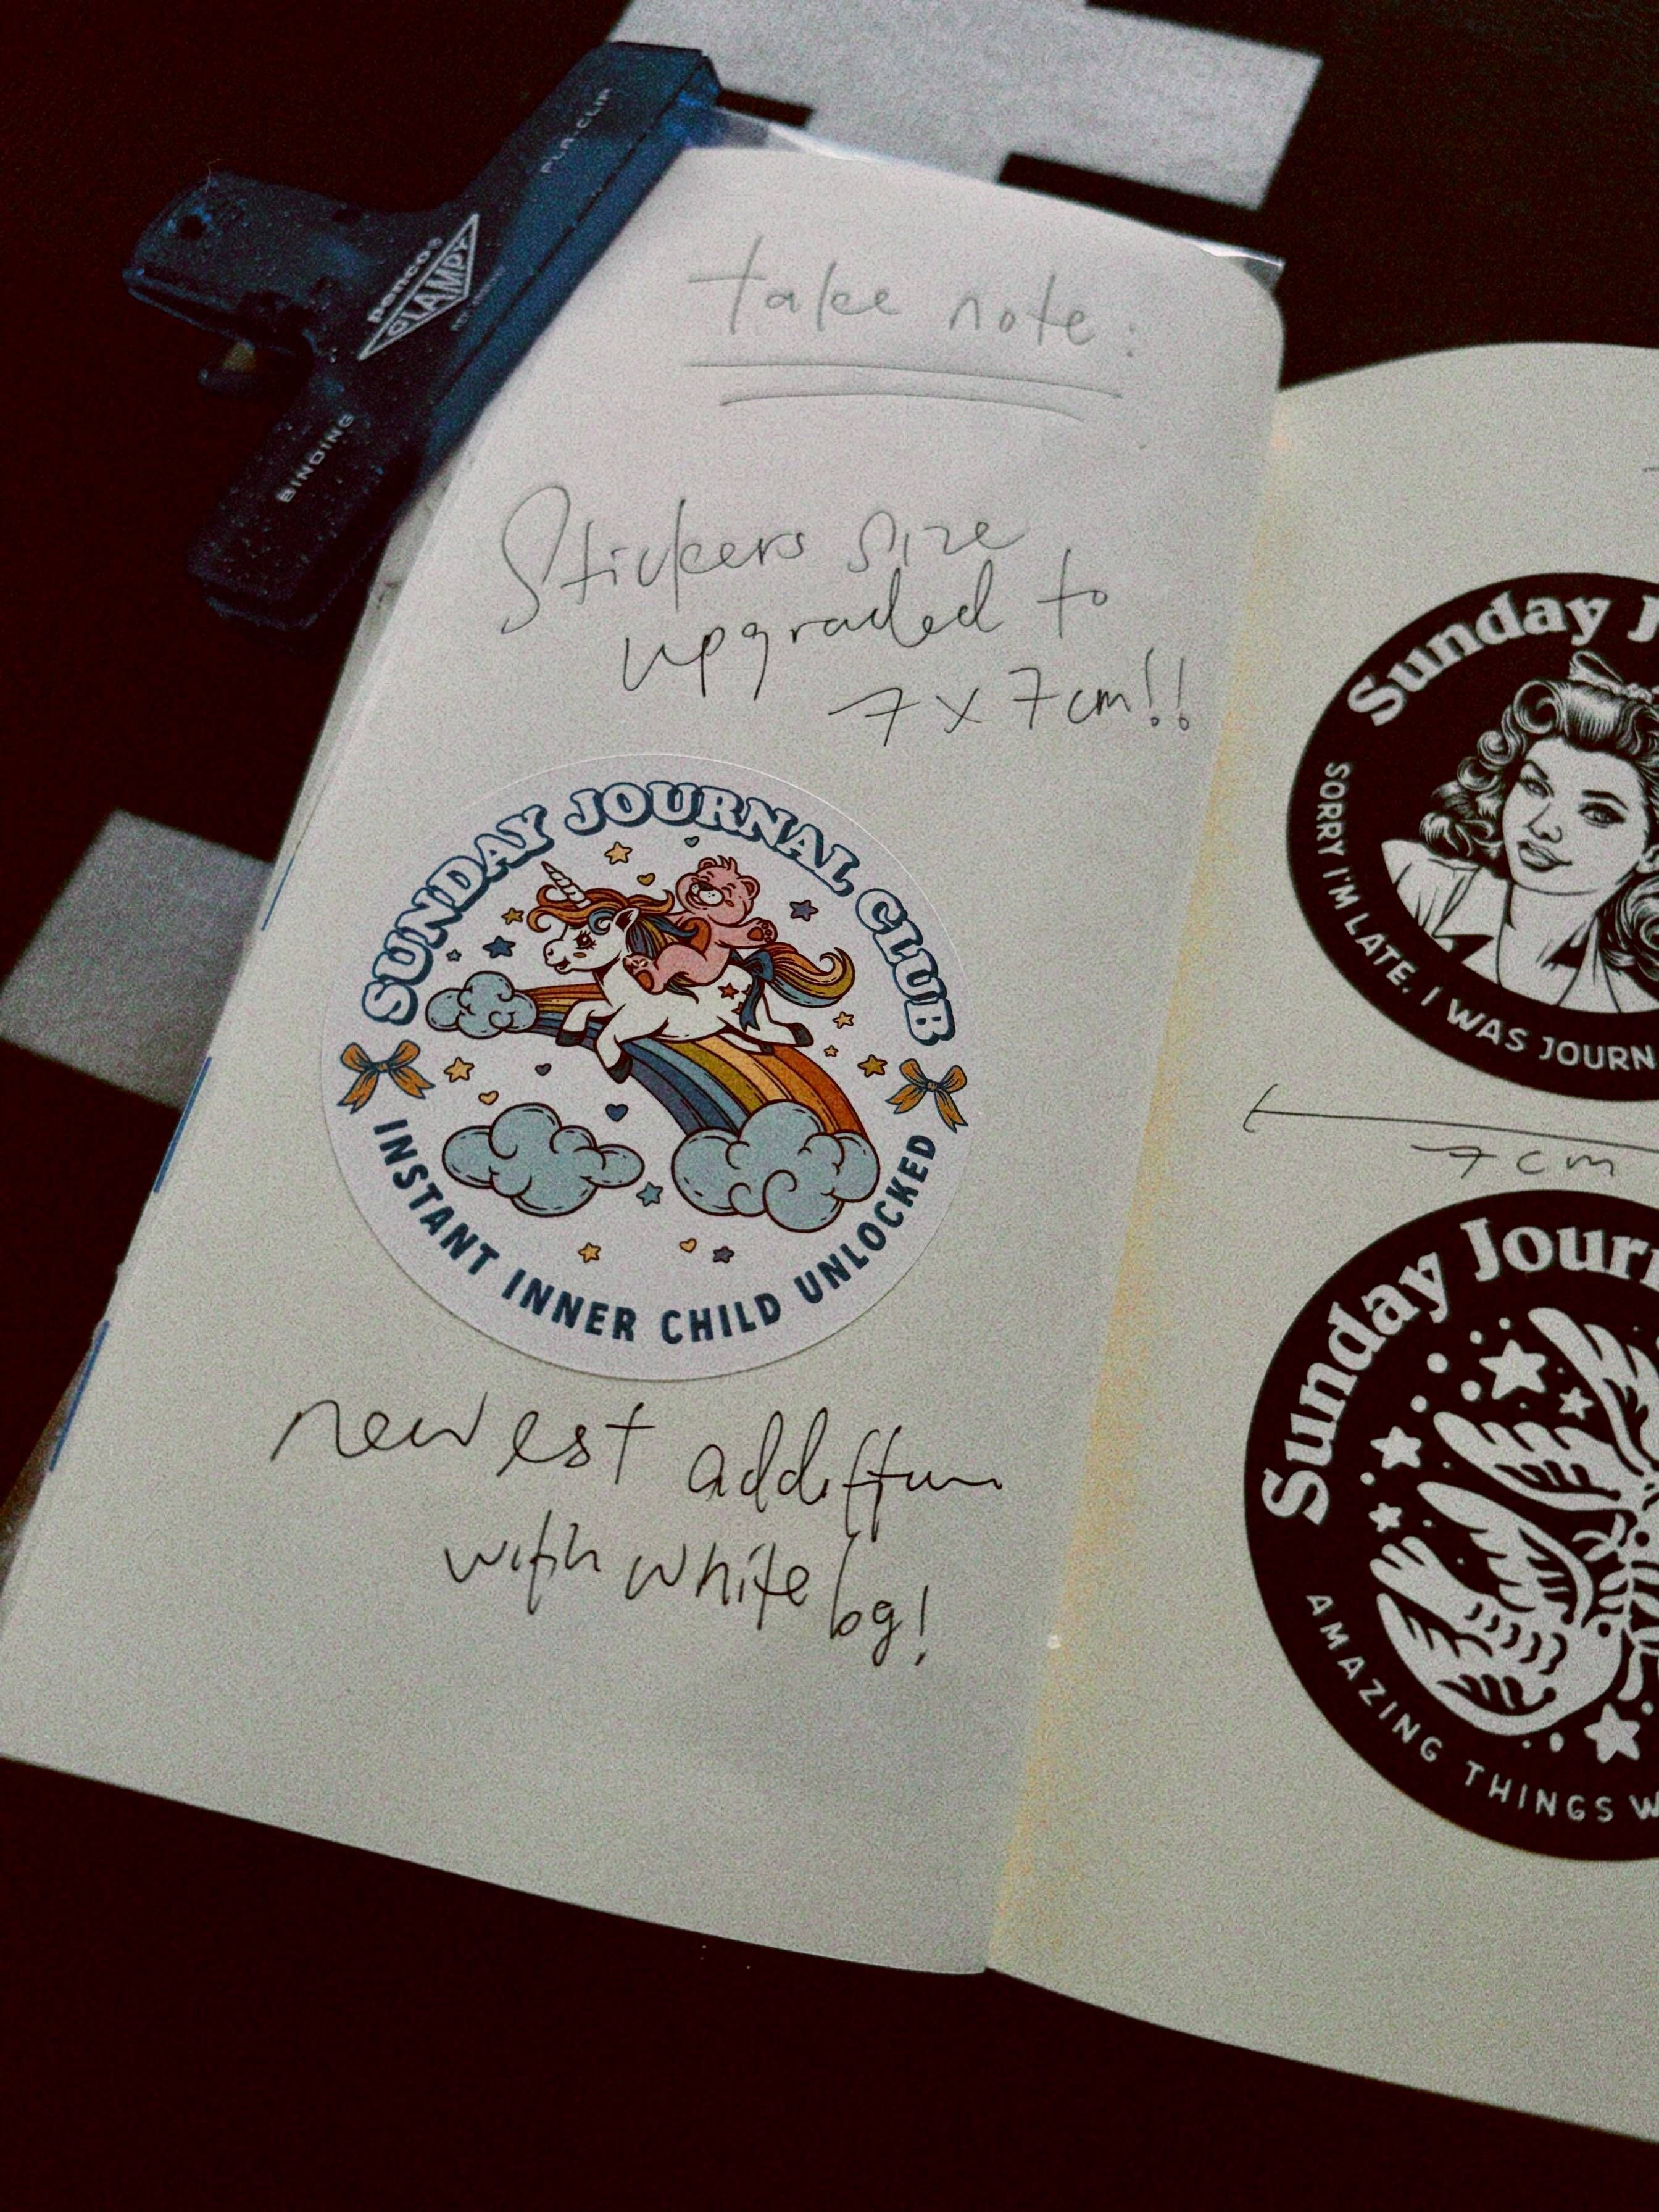 PLA-CLIP
penco®
CLAMPY
BINDING
take note:
Stickers size
upgraded to
7 x 7cm!!
SUNDAY JOURNAL CLUB
INSTANT INNER CHILD UNLOCKED
newest addition
with white bg!
Sunday J
SORRY I'M LATE. I WAS JOURN
7cm
Sunday Journ
AMAZING THINGS W